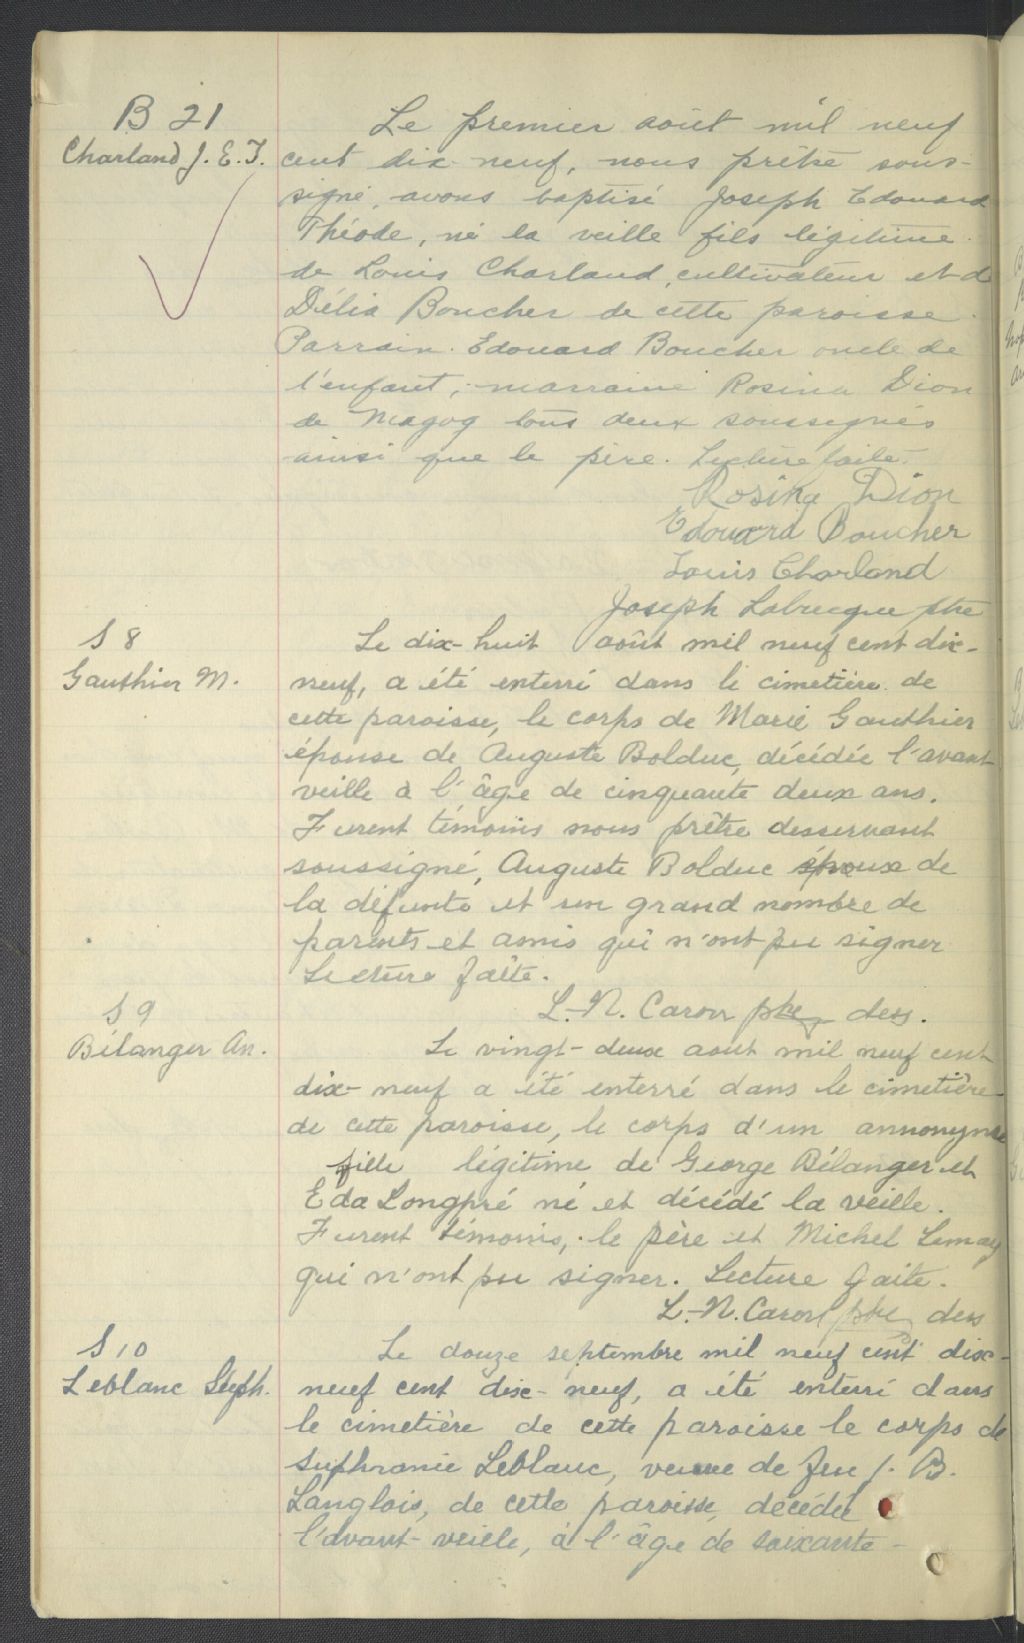 B 21
Charland J. E. T.
Le premier août mil neuf
cent dix-neuf, nous prêtre sous-
signé, avons baptisé Joseph Edouard
Théode, né la veille fils légitime
de Louis Charland, cultivateur et d
Délia Boucher de cette paroisse.
Parrain. Edouard Boucher oncle de
l'enfant, marraine Rosina Dion
de Magog tous deux soussignés
ainsi que le père. Lecture faite.
Rosina Dion
Edouard Boucher
Louis Charland
Joseph Labrecque ptre
S 8
Gauthier M.
Le dix-huit août mil neuf cent dix-
neuf, a été enterré dans le cimetière de
cette paroisse, le corps de Marie Gauthier
épouse de Auguste Bolduc, décédée l'avant
veille à l'âge de cinquante deux ans.
Furent témoins nous prêtre desservant
soussigné, Auguste Bolduc époux de
la défunte et un grand nombre de
parents et amis qui n'ont pu signer
Lecture faite.
L.-N. Caron ptre dess.
S 9
Bélanger An.
Le vingt-deux aout mil neuf cent
dix-neuf a été enterré dans le cimetière
de cette paroisse, le corps d'un annonyme
fille légitime de George Bélanger et
Eda Longpré né et décédé la veille.
Furent témoins, le père et Michel Lemay
qui n'ont pu signer. Lecture faite.
L.-N. Caron ptre dess
S 10
Leblanc Séph.
Le douze septembre mil neuf cent dix-
neuf cent dix-neuf, a été enterré dans
le cimetière de cette paroisse le corps de
Leblanc, veuve de feu J. B.
Langlois, de cette paroisse, décédée
l'avant-veille, à l'âge de soixante-